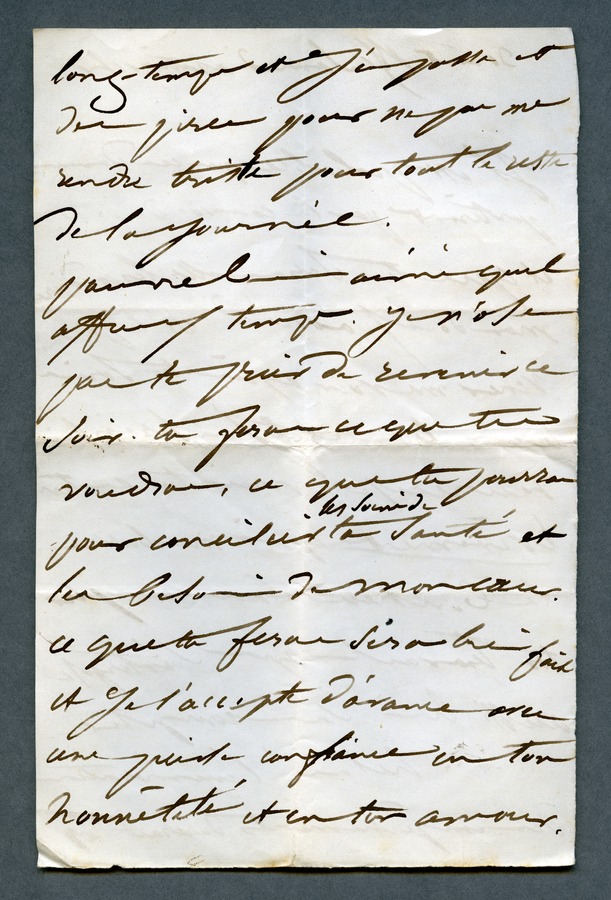 long-temps et j'en passe et
des pires pour ne pas me
rendre triste pour tout le reste
de la journée.
pauvre bien aimé quel
affreux temps. Je n'ose
pas te prier de revenir ce
soir. tu feras ce que tu
voudras, ce que tu pourras
les soins de
pour concilier ta santé et
les besoins de mon cœur.
ce que tu feras sera bien fait
et je l'accepte d'avance avec
une juste confiance en ton
honnêteté et en ton amour.